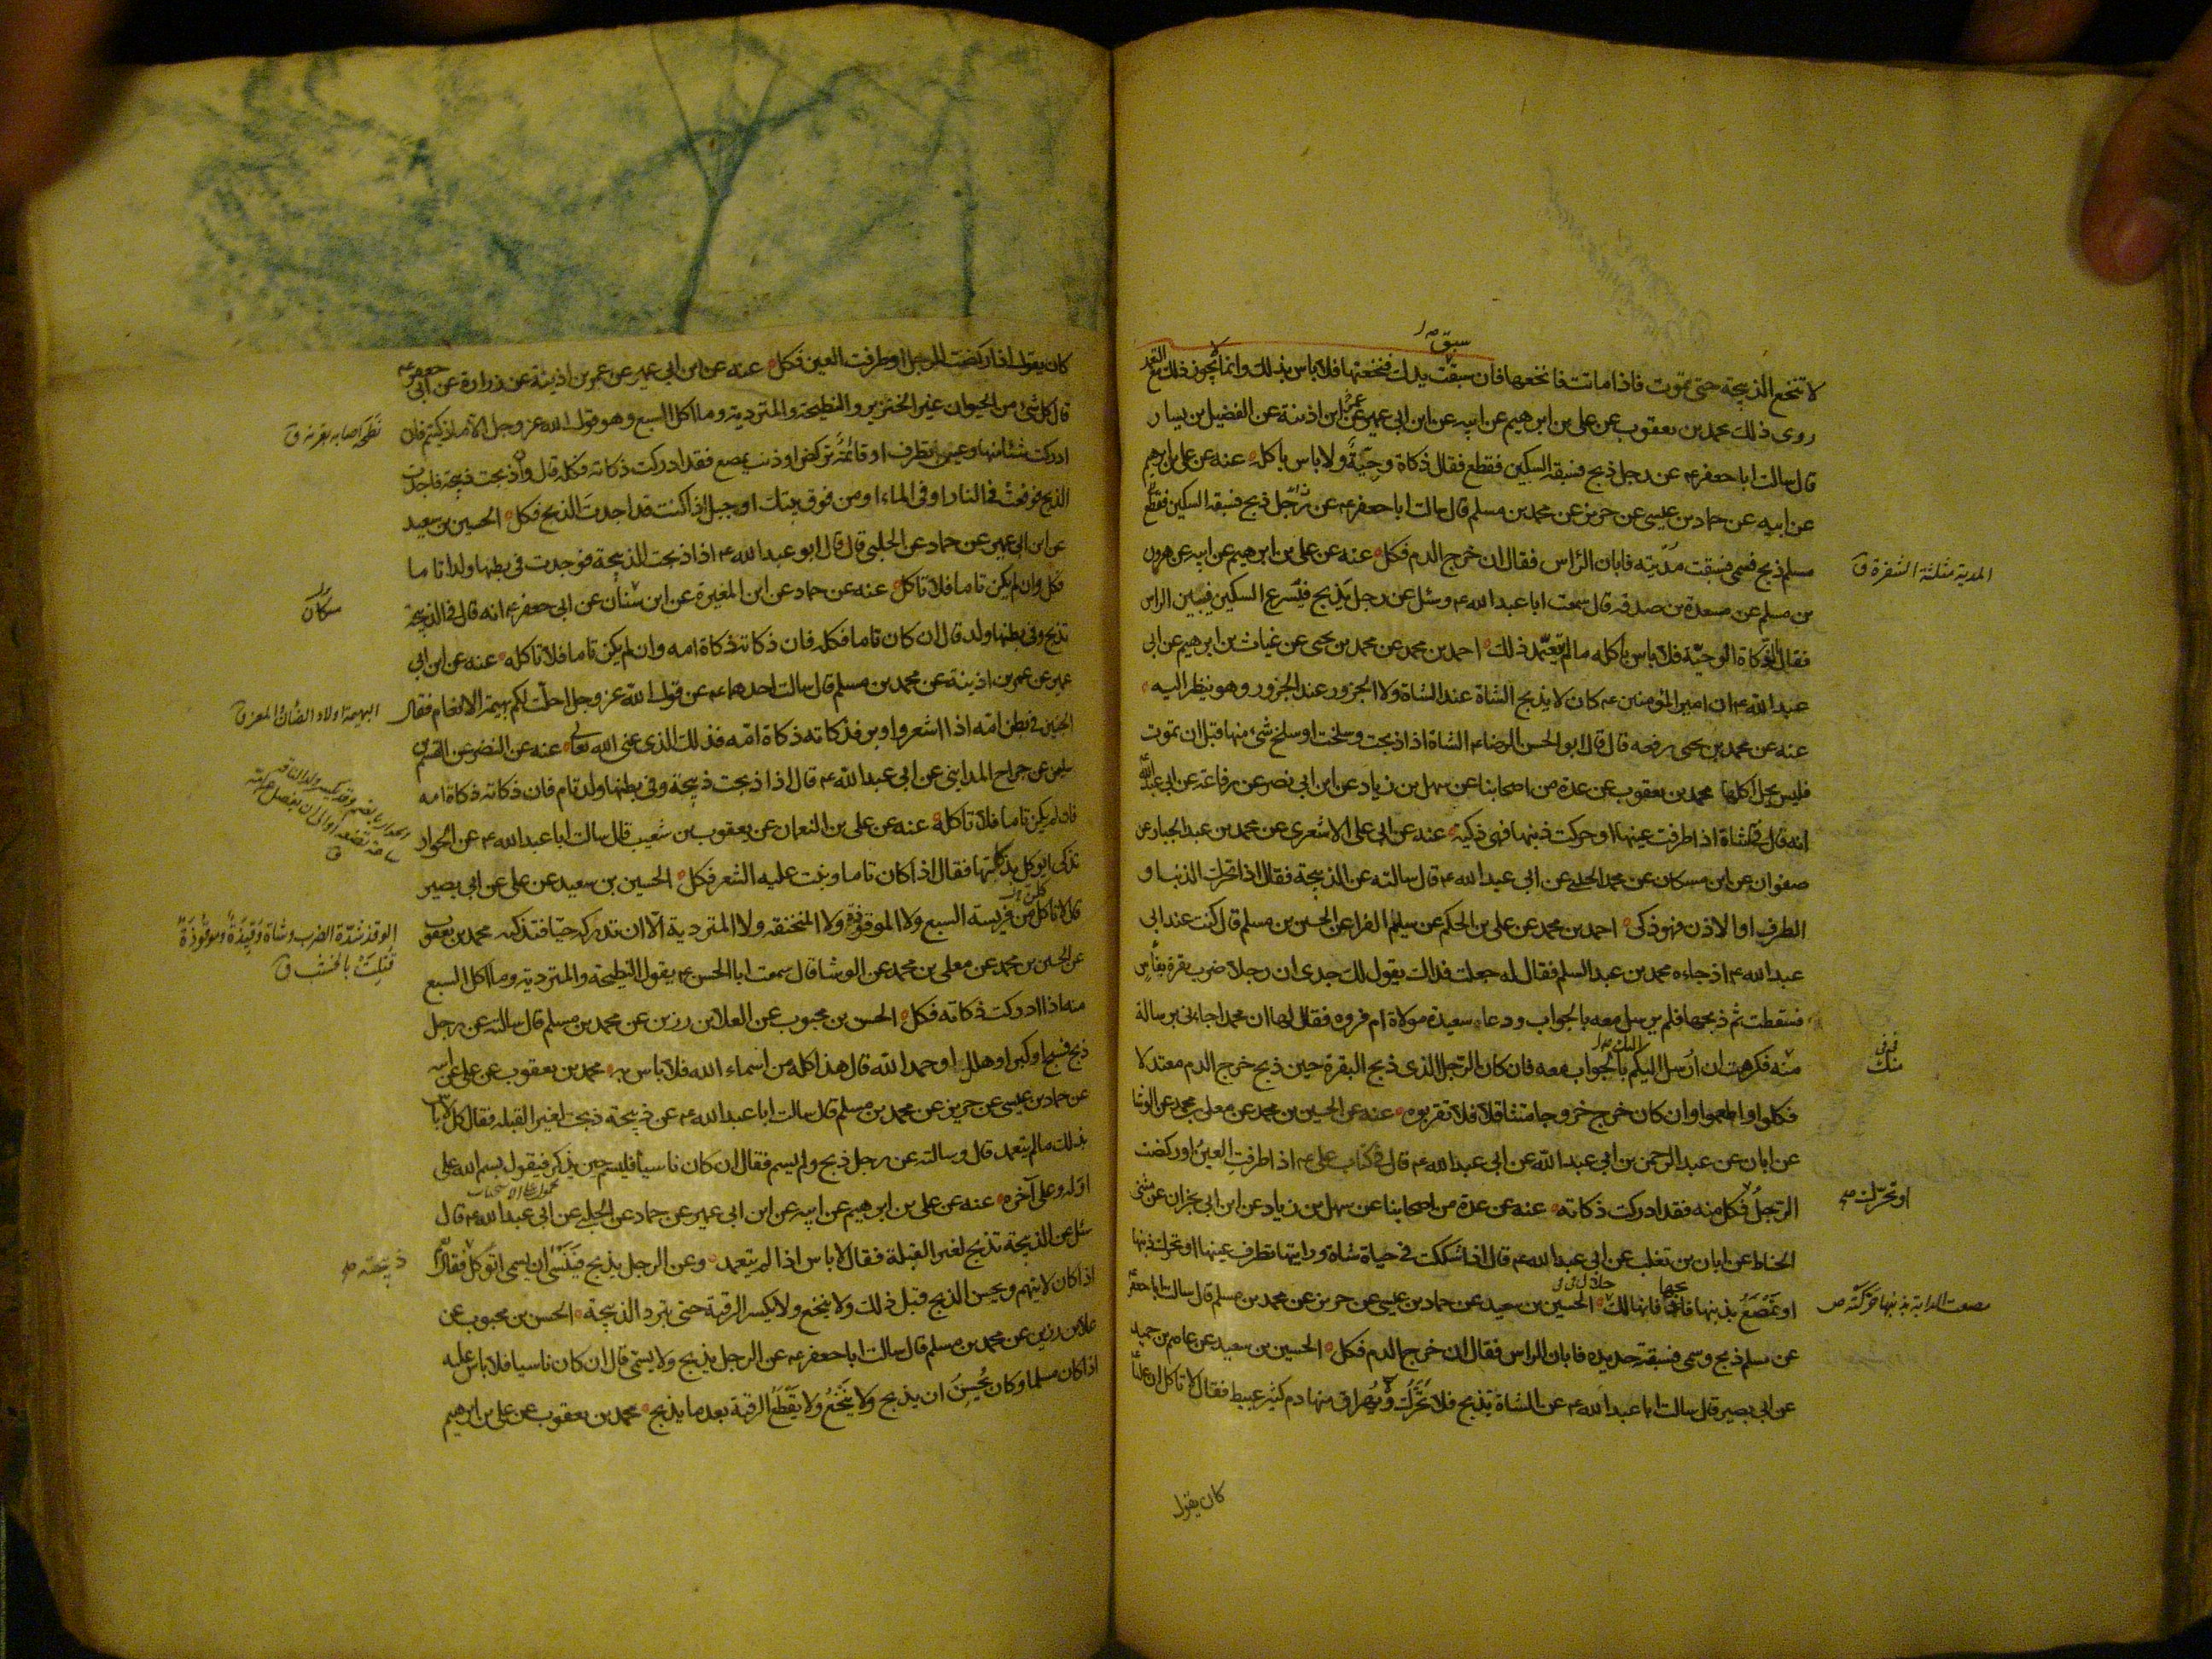 سبق
لا تنخع الذبيحة حتى تموت فاذا ماتت فانخعها فان سبقت يدك فنخعتها فلا باس بذلك وانما لا يجوز ذلك مع التعمد
روى ذلك محمد بن يعقوب عن علي بن ابرهيم عن ابيه عن ابن ابي عمير عن عمر ابن اذينة عن الفضيل بن يسار
قال سالت ابا جعفر ع عن رجل ذبح فسبقه السكين فقطع فقال ذكاة وحيّة ولا باس باكله عنه عن علي بن ابرهيم
عن ابيه عن حماد بن عيسى عن حريز عن محمد بن مسلم قال سالت ابا جعفر ع عن رجل ذبح فسبقه السكين فقطع
مسلم ذبح فسمى فسبقت مديته فابان الراس فقال ان خرج الدم فكل عنه عن علي بن ابرهيم عن ابيه عن هرون
المدية مثلثة الشفرة ق
بن مسلم عن مسعدة بن صدقه قال سمعت ابا عبد الله ع وسئل عن رجل يذبح فيسرع السكين فيبين الراس
فقال الذكاة الوحيّة فلا باس باكله ما لم يتعمّد ذلك احمد بن محمد عن محمد بن يحيى عن غياث بن ابرهيم عن ابي
عبد الله ع ان امير المؤمنين ع كان لا يذبح الشاة عند الشاة ولا الجزور عند الجزور وهو ينظر اليه
عنه عن محمد بن يحيى رفعه قال قال ابو الحسن الرضا ع الشاة اذا ذبحت وسلخت او سلخ شيء منها قبل ان تموت
فليس يحل اكلها محمد بن يعقوب عن عدة من اصحابنا عن سهل بن زياد عن ابن ابي نصر عن رفاعة عن ابي عبد الله
انه قال في الشاة اذا طرفت عينها او حركت ذنبها فهي ذكية عنه عن ابي علي الاشعري عن محمد بن عبد الجبار عن
صفوان عن ابن مسكان عن محمد الحلبي عن ابي عبد الله ع قال سالته عن الذبيحة فقال اذا تحرك الذنب او
الطرف او الاذن فهو ذكي احمد بن محمد عن علي بن الحكم عن سليم الفرا عن الحسن بن مسلم قال كنت عند ابي
عبد الله ع اذ جاءه محمد بن عبد السلم فقال له جعلت فداك يقول لك جدي ان رجلا ضرب بقرة بفأس
فسقطت ثم ذبحها فلم يرسل معه بالجواب ودعا سعيدة مولاة ام فروه فقال لها ان محمدا جاءني برسالة
منه فكرهت ان ارسل اليكم بالجواب معه فان كان الرجل الذي ذبح البقرة حين ذبح خرج الدم معتدلا
منك
فكلوا واطعموا وان كان خرج خروجا متثاقلا فلا تقربوه عنه عن الحسين بن محمد عن معلى بن محمد عن الوشا
عن ابان عن عبد الرحمن بن ابي عبد الله عن ابي عبد الله ع قال في كتاب علي ع اذا طرفت العين او ركضت
الرجل فكل منه فقد ادركت ذكاته عنه عن عدة من اصحابنا عن سهل بن زياد عن ابن ابي نجران عن مثنى
او تحركت
الحناط عن ابان بن تغلب عن ابي عبد الله ع قال اذا شككت في حياة شاة ورايتها تطرف عينها او تحرك ذنبها
او تمصع بذنبها فاذبحها فانها لك الحسين بن سعيد عن حماد بن عيسى عن حريز عن محمد بن مسلم قال سالت ابا جعفر
مصعت الدابة بذنبها حركته ص
عن مسلم ذبح وسمى فسبقته حديده فابان الراس فقال ان خرج الدم فكل الحسين بن سعيد عن عاصم بن حميد
عن ابي بصير قال سالت ابا عبد الله ع عن الشاة تذبح فلا تحرك ويهراق منها دم كثير عبيط فقال لا تاكل ان عليا
كان يقول
كان يقول اذا ركضت الرجل او طرفت العين فكل عنه عن ابن ابي عمير عن عمر بن اذينة عن زرارة عن ابي جعفر ع
قال كل شيء من الحيوان غير الخنزير والنطيحة والمتردية وما اكل السبع وهو قول الله عز وجل الا ما ذكيتم فان
نطحه اصابه بقرنه ق
ادركت شيئا منها وعين تطرف او قائمة تركض او ذنب يمصع فقد ادركت ذكاته فكله قال واذا ذبحت ذبيحة فاجدت
الذبح فوقعت في النار او في الماء او من فوق بيتك او جبل اذا كنت قد اجدت الذبح فكل الحسين بن سعيد
عن ابن ابي عمير عن حماد عن الحلبي قال قال ابو عبد الله ع اذا ذبحت الذبيحة فوجدت في بطنها ولدا تاما
فكل وان لم يكن تاما فلا تاكل عنه عن حماد عن ابن المغيرة عن ابن سنان عن ابي جعفر ع انه قال في الذبيحة
مسكان
تذبح وفي بطنها ولد قال ان كان تاما فكله فان ذكاته ذكاة امه وان لم يكن تاما فلا تاكله عنه عن ابن ابي
عمير عن عمر بن اذينة عن محمد بن مسلم قال سالت احدهما ع عن قول الله عز وجل احلت لكم بهيمة الانعام فقال
البهيمة اولاد الضان والمعز ق
الجنين في بطن امه اذا اشعر واوبر فذكاته ذكاة امه فذلك الذي عنى الله تعالى عنه عن النضر عن القسم بن
سليمن عن جراح المدايني عن ابي عبد الله ع قال اذا ذبحت ذبيحة وفي بطنها ولد تام فان ذكاته ذكاة امه
فان لم يكن تاما فلا تاكله عنه عن علي بن النعمان عن يعقوب بن شعيب قال سالت ابا عبد الله ع عن الحوار
الحوار بالضم وقد يكسر ولد الناقة ساعة تضعه او الى ان يفصل عن امه ق
تذكى امه ايؤكل بذكاتها فقال اذا كان تاما ونبت عليه الشعر فكل الحسين بن سعيد عن علي عن ابي بصير
قال لا تاكل من فريسة السبع ولا الموقوذة ولا المنخنقه ولا المتردية الا ان تدركه حيا فتذكيه محمد بن يعقوب
الوقذ شدة الضرب وشاة وقيذة وموقوذة قتلت بالخشب ق
عن الحسين بن محمد عن معلى بن محمد عن الوشا قال سمعت ابا الحسن ع يقول النطيحة والمتردية وما اكل السبع
منه اذا ادركت ذكاته فكل الحسن بن محبوب عن العلا بن رزين عن محمد بن مسلم قال سالته عن رجل
ذبح فسبح او كبر او هلل او حمد الله قال هذا كله من اسماء الله فلا باس به محمد بن يعقوب عن علي عن ابيه
عن حماد بن عيسى عن حريز عن محمد بن مسلم قال سالت ابا عبد الله ع عن ذبيحة ذبحت لغير القبله فقال كل لا باس
بذلك ما لم يتعمد قال وسالته عن رجل ذبح ولم يسم فقال ان كان ناسيا فليسم حين يذكر فيقول بسم الله على
محمول على الاستحباب
اوله وعلى آخره عنه عن علي بن ابرهيم عن ابيه عن ابن ابي عمير عن حماد عن الحلبي عن ابي عبد الله ع قال
سئل عن الذبيحة تذبح لغير القبلة فقال لا باس اذا لم يتعمد وعن الرجل يذبح فينسى ان يسمى اتؤكل فقال
ذبيحته
اذا كان لا يتهم ويحسن الذبح قبل ذلك ولا ينخع ولا يكسر الرقبة حتى تبرد الذبيحة الحسن بن محبوب عن
علا بن رزين عن محمد بن مسلم قال سالت ابا جعفر ع عن الرجل يذبح ولا يسمى قال ان كان ناسيا فلا باس عليه
اذا كان مسلما وكان يحسن ان يذبح ولا ينخع ولا يقطع الرقبة بعد ما يذبح محمد بن يعقوب عن علي بن ابرهيم